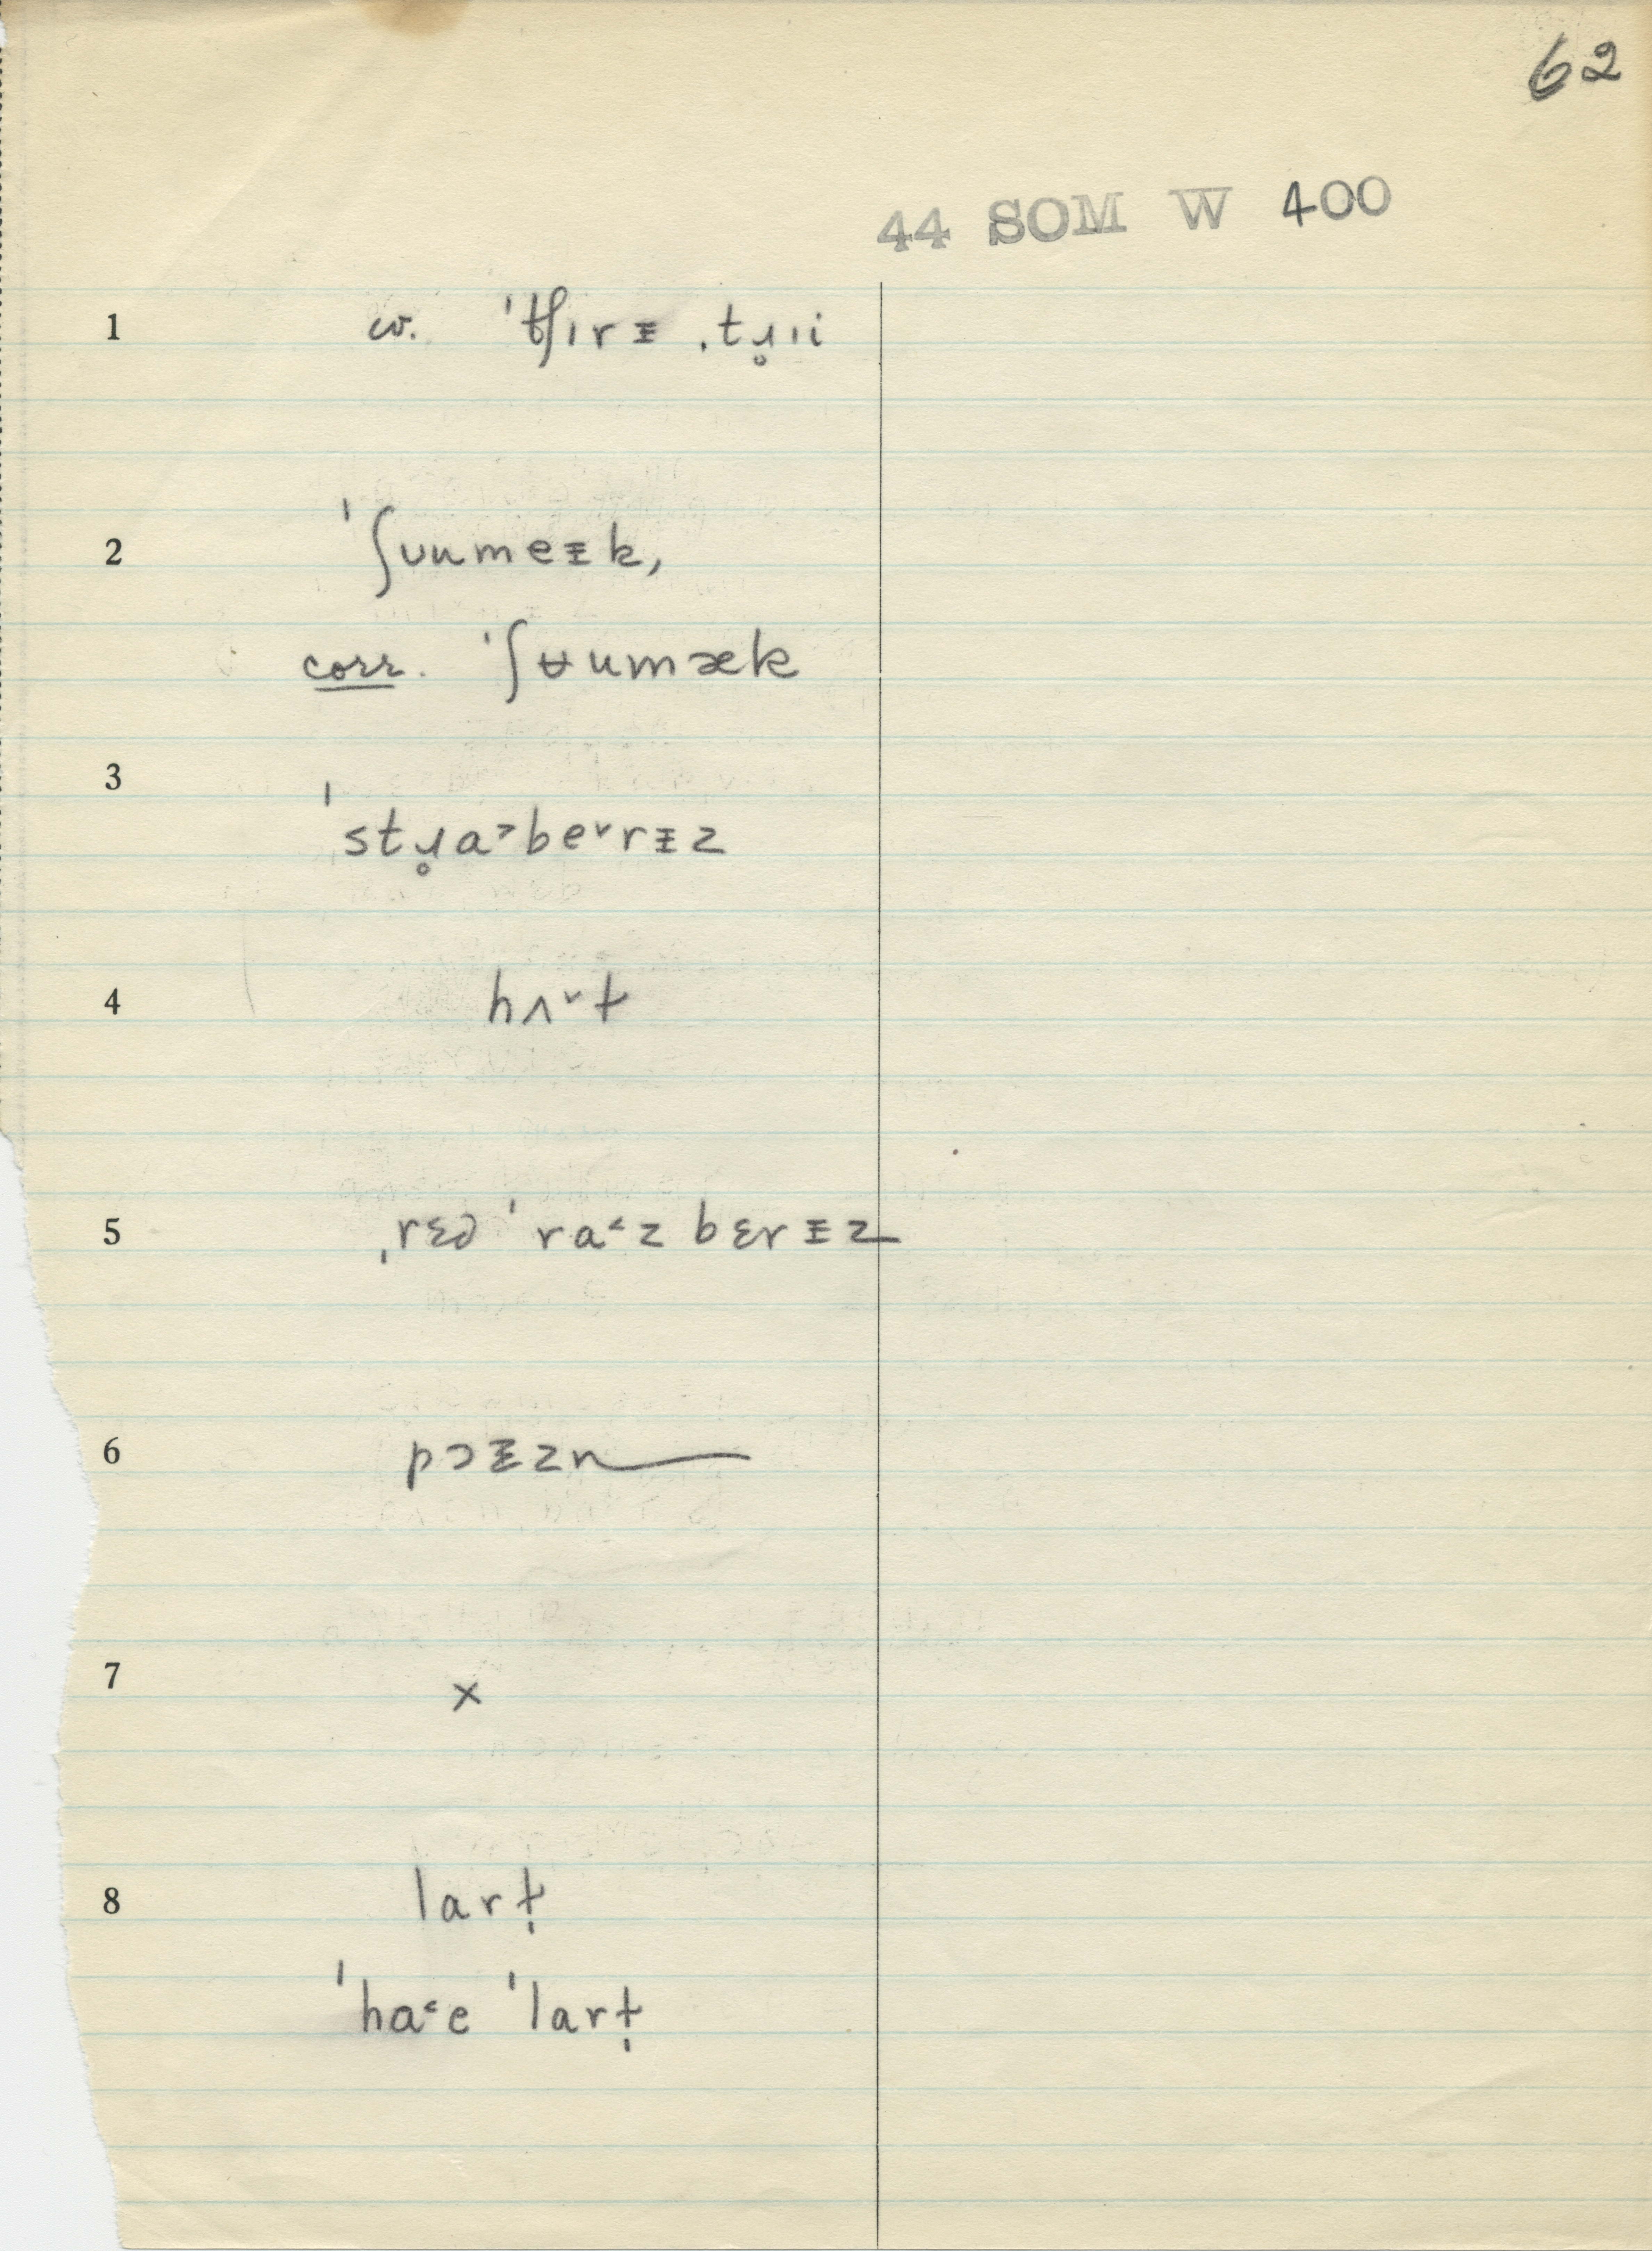 62
44 SOM W 400
1 cv. ˈtʃɪrᵻ ˌtɹ̥ɪi
2 ˈʃʊumeᵻk,
corr. ˈʃʉumæk
3 ˈstɹ̥a˃be˅rᵻz
4 hʌ˅t
5 ˌrɛd ˈra˂zbɛrᵻz
6 pɔᵻzn
7 ×
8 lart̩
ˈha˂e ˈlart̩